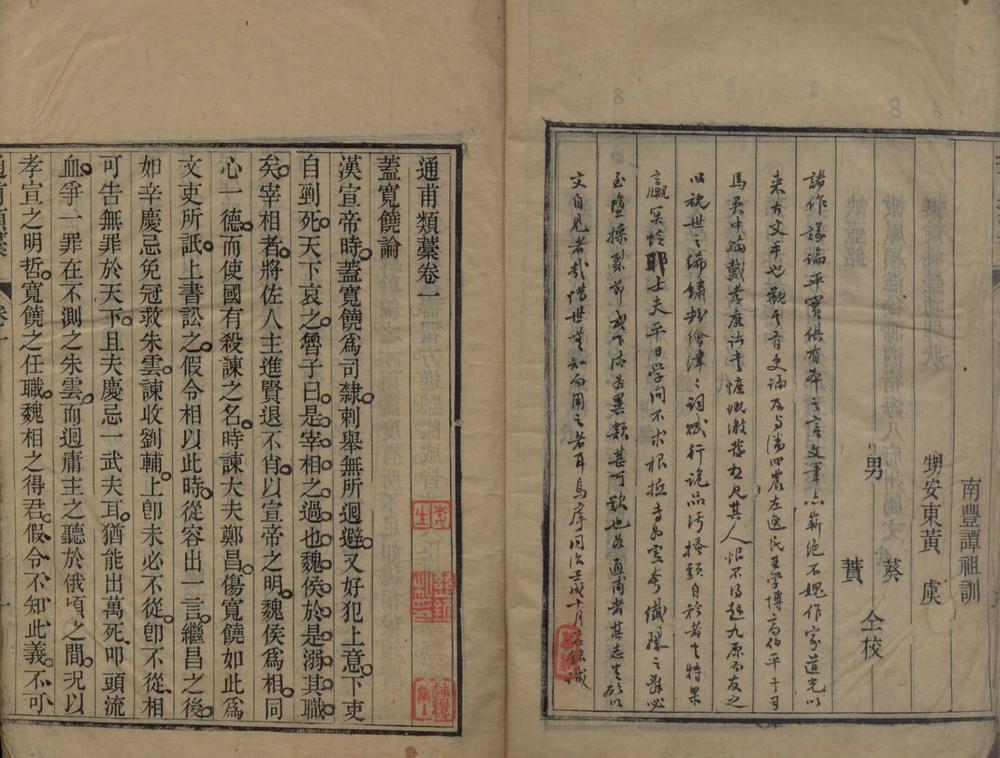 南豐譚祖訓
甥安東黃 虞
男 葵 仝校
蕡
諸作議論平實俱有本之言文筆亦嶄絶不媿作家道光以
来古文手也觀其首文論及与潘四農左逸民王学博高伯平于司
馬吴中翰戴孝廉諸書慷慨激發想見其人恨不得起九原而友之
以視世之絺繡粉繪津津詞賦行詭品污搔頭自矜者特果
蠃冥蛉耶士夫平日学问不求根柢專為虛夸之辭必
至墮操裂節下流異類甚可歎也如通甫者其志以
文自見者哉惜世莫知而用之者耳烏虖同治壬戌十月識
通甫類藳卷一
蓋寬饒論
漢宣帝時。蓋寬饒爲司隸。刺舉無所迴避。又好犯上意。下吏
自剄死。天下哀之。魯子曰。是宰相之過也。魏侯於是溺其職
矣。宰相者。將佐人主進賢退不肖。以宣帝之明。魏侯爲相。同
心一德。而使國有殺諫之名。時諫大夫鄭昌。傷寬饒如此。爲
文吏所詆。上書訟之。假令相以此時。從容出一言。繼昌之後。
如辛慶忌免冠救朱雲。諫收劉輔。上卽未必不從。卽不從。相
可告無罪於天下。且夫慶忌一武夫耳。猶能出萬死。叩頭流
血。爭一罪在不測之朱雲。而迴庸主之聽於俄頃之閒。况以
孝宣之明哲。寬饒之任職。魏相之得君。假令不知此義。不可
通甫類藳 卷一 一